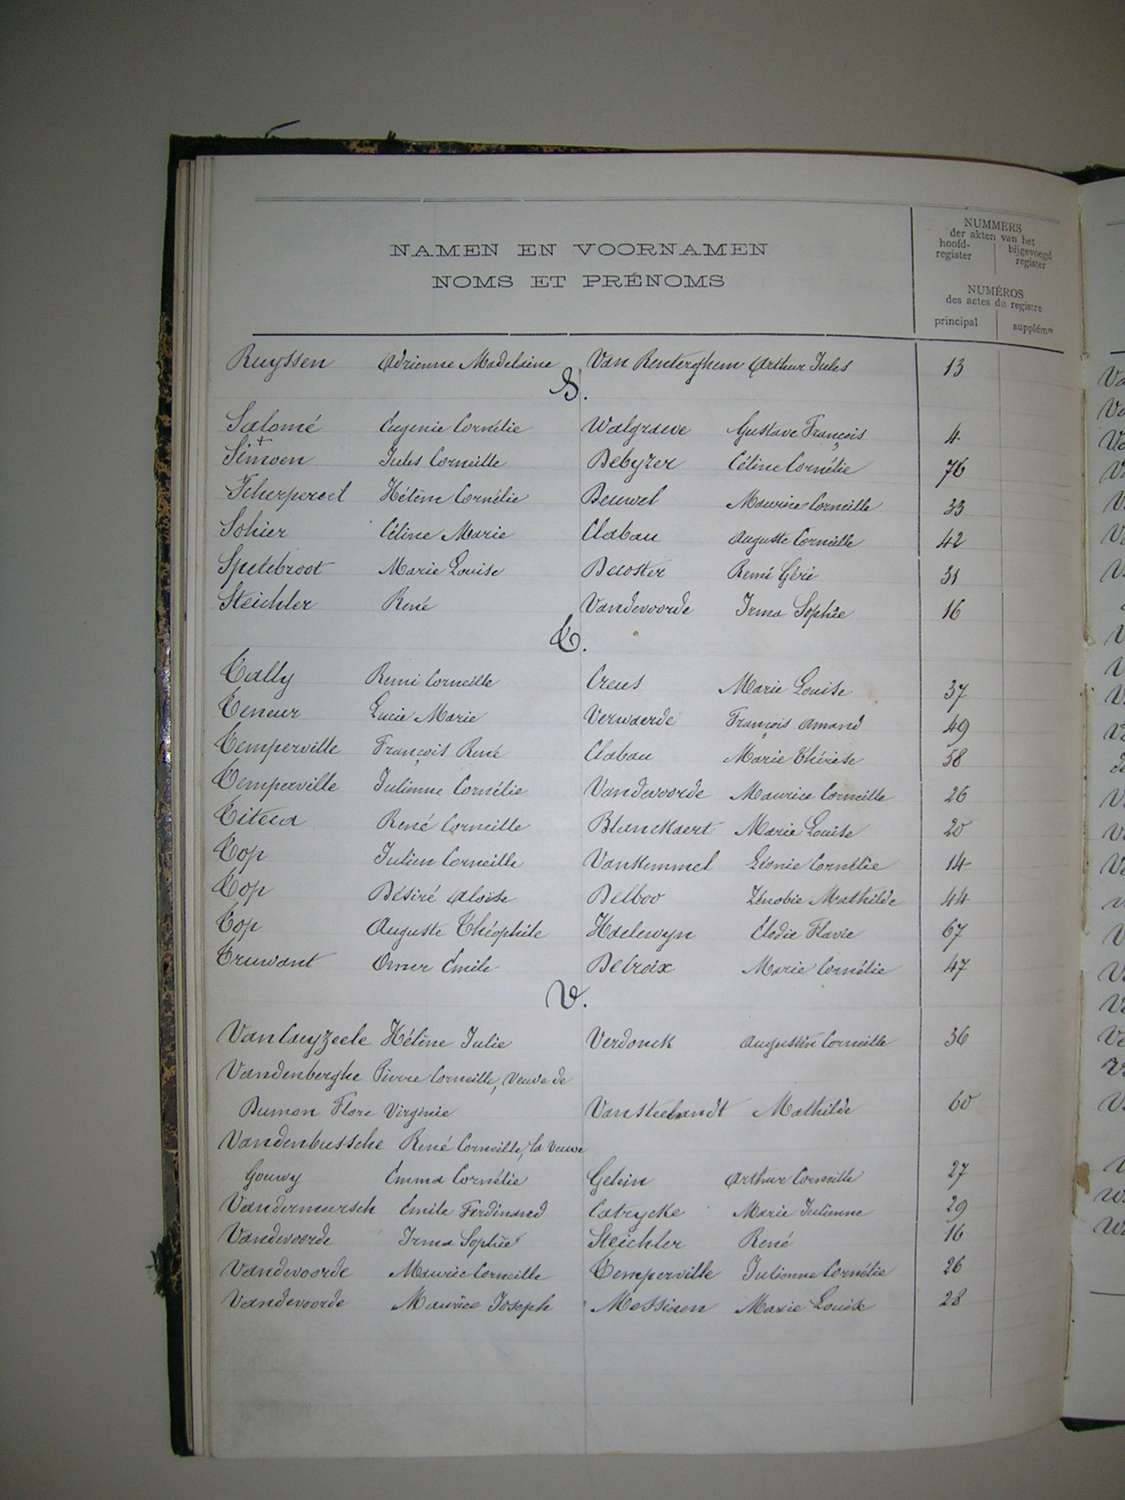 NAMEN EN VOORNAMEN
NOMS ET PRÉNOMS
NUMMERS
der akten van het
hoofd-register
bijgevoegd register
NUMÉROS
des actes du registre
principal
supplém
Ruyssen Adrienne Madeleine Van Renterghem Arthur Jules 13
S.
Salomé Eugenie Cornélie Walgraeve Gustave François 4
Simoen Jules Corneille Debyzer Céline Cornélie 76
Scherpereel Hélène Cornélie Deuwel Maurice Corneille 33
Sohier Céline Marie Clabau Auguste Corneille 42
Spelebroot Marie Louise Ducoster Remi Géri 31
Steichler René Vandevoorde Irma Sophie 16
T.
Tally Remi Corneille Creus Marie Louise 37
Teneur Lucie Marie Verwaerde François Amand 49
Temperville François René Clabau Marie Thérèse 58
Temperville Julienne Cornélie Vandevoorde Maurice Corneille 26
Titeca René Corneille Blanckaert Marie Louise 20
Top Julien Corneille Vankemmel Léonie Cornélie 14
Top Désiré Aloïse Delboo Zénobie Mathilde 44
Top Auguste Théophile Haelewyn Elodie Flavie 67
Truwant Omer Émile Delroix Marie Cornélie 47
V.
Van Cuyzeele Hélène Julie Verdonck Augustin Corneille 36
Vandenberghe Pierre Corneille, Veuve de
Dumon Flore Virginie Vansteelandt Mathilde 60
Vandenbussche René Corneille, la Veuve
Gouwy Emma Cornélie Gelein Arthur Corneille 27
Vandermersch Émile Ferdinand Catrycke Marie Julienne 29
Vandevoorde Irma Sophie Steichler René 16
Vandevoorde Maurice Corneille Temperville Julienne Cornélie 26
Vandevoorde Maurice Joseph Messiaen Marie Louise 28